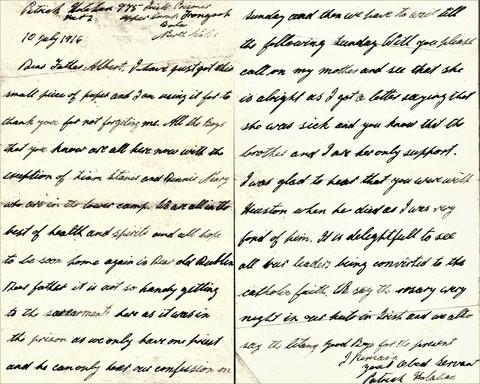 Patrick Holahan 975 Irish Prisoner
Hut 2 Upper Camp Frongoch
Bala
North Wales
10 July 1916
Dear Father Albert, I have just got this
small piece of paper and I am using it for to
thank you for not forgetting me. All the Boys
that you know are all here now with the
exception of Liam and Dennis
who are in the lower camp. We are all in the
best of health and spirits and all hope
to be soon home again in Dear old Dublin
Dear father it is not so handy getting
to the sacraments here as it was in
the prison as we only have one priest
and he can only hear our confession on
sunday and then we have to wait till
the following sunday Will you please
call on my mother and see that she
is alright as I got a letter saying that
she was sick and you know that the
brother and I are her only support.
I was glad to hear that you were with
Heuston when he died as I was very
fond of him. It is delightfull to see
all our leaders being converted to the
catholic faith. We say the rosary every
night in our huts in Irish and we also
say the litany Good Bye for the present
I Remain
your obed servant
Patrick Holahan